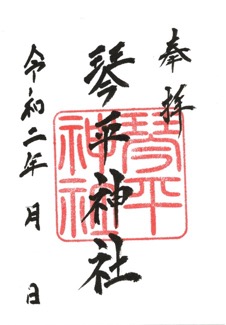 奉拝
琴平神社
琴平
神社
令和二年 月 日